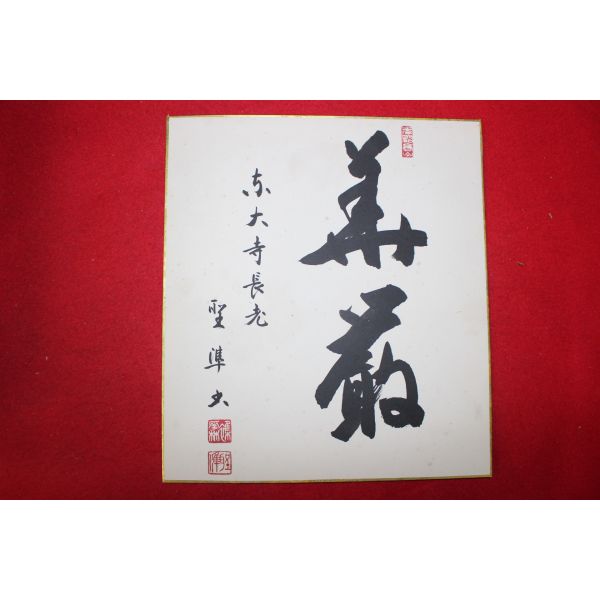 華厳
東大寺長老
聖準書